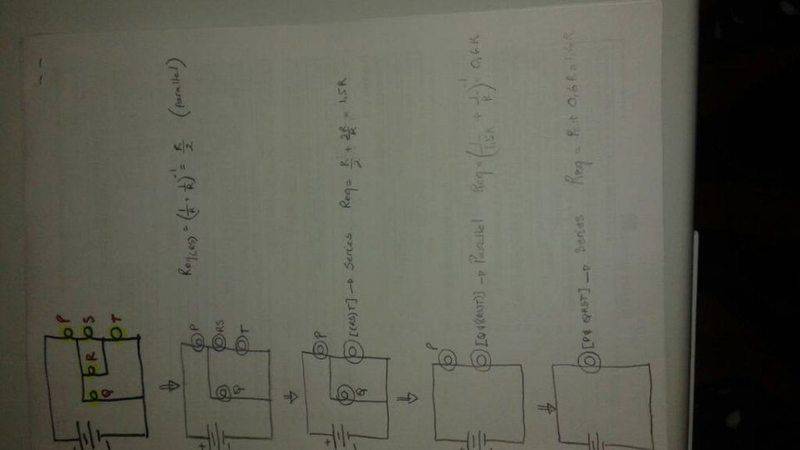 P
S
R
Q
T
+
-
Req(RS) = (1/R + 1/R)^-1 = R/2 (parallel)
P
RS
Q
T
+
-
P
Q
[(RS)T] → Series Req = R/2 + 2R/2 = 1.5R
+
-
P
[Q∥(RS)T] → Parallel Req = (1/1.5R + 1/R)^-1 = 0,6R
+
-
→ Series Req = R + 0,6R = 1.6R
+
-